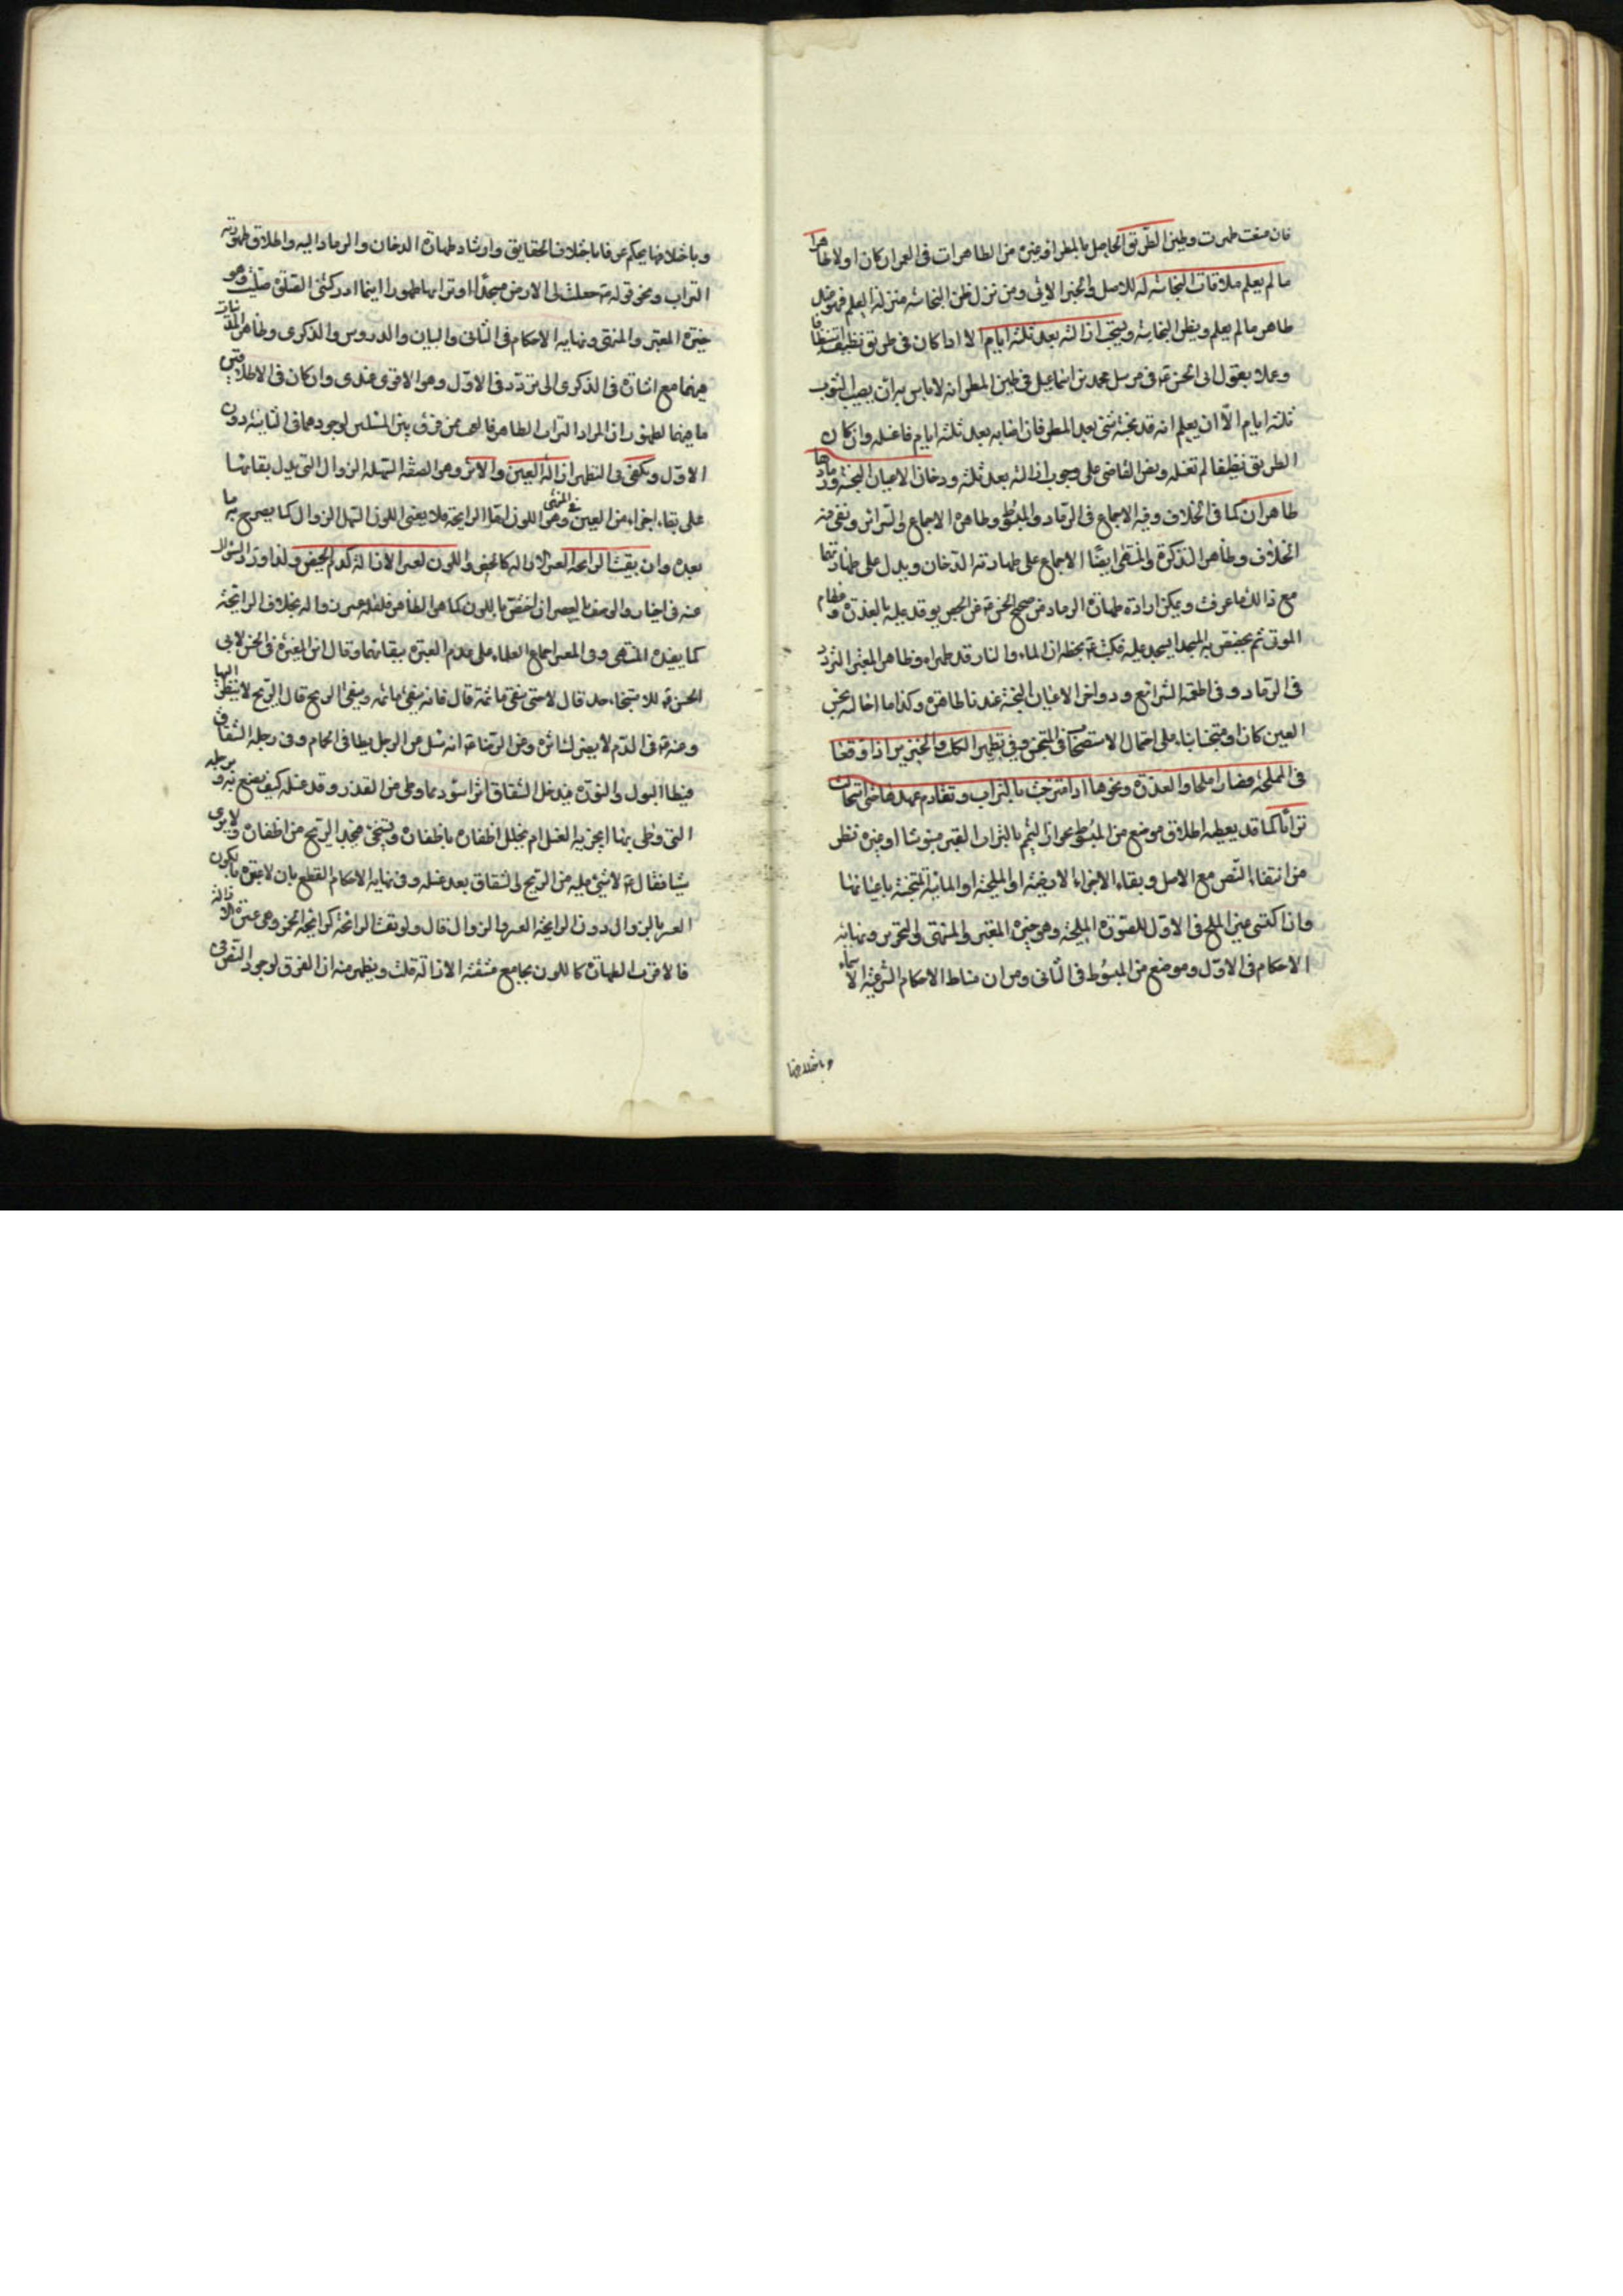 فان صفت طهرت وطين الطريق الحاصل بالمطر او غيره من الطاهرات في العمران كان اولا طاهرا
ما لم يعلم ملاقات النجاسة له للاصل والخبر الاتي ومن نزل ظن النجاسة منزلة العلم فهو عنده
طاهر ما لم يعلم ويظن النجاسة ويستحب ازالته بعد ثلثة ايام الا اذا كان في طريق نظيف استنظافا
وعملا بقول ابي الحسن ع في مرسل محمد بن اسماعيل في طين المطر انه لا باس به ان يصيب الثوب
ثلثة ايام الا ان يعلم انه قد نجسه شئ بعد المطر فان اصابه بعد ثلثة ايام فاغسله وان كان
الطريق نظيفا لم تغسله ونص القاضي على وجوب ازالته بعد ثلثة ودخان الاعيان النجسة ورمادها
طاهران كما في الخلاف وفيه الاجماع في الرماد والمبسوط وظاهره الاجماع والسرائر ونفى فيه
الخلاف وظاهر التذكرة والمنتهى ايضا الاجماع على طهارته الدخان ويدل على طهارتهما
مع ذلك ما عرفت ويمكن ارادة طهارة الرماد من صحيح الحسن عن الجص يوقد عليه بالعذرة وعظام
الموتى ثم يجصص به المسجد ايسجد عليه فكتب ع بخطه ان الماء والنار قد طهراه وظاهر المعتبر التردد
في الرماد وفي اطعمة الشرائع ودواخن الاعيان النجسة عندنا طاهرة وكذا ما احالته نجس
العين كان او متنجسا بناء على احتمال الاستصحاب في المتنجس وفي تطهير الكلب والخنزير اذا وقعا
في المملحة فصارا ملحا والعذرة ونحوها اذا امتزجت بالتراب وتقادم عهدها حتى استحالت
ترابا كما قد يعطيه اطلاق موضع من المبسوط بجواز التيمم بالتراب القبر منبوشا او غيره نظر
من انتفاء النص مع الاصل وبقاء الاجزاء الارضية او الملحية او المائية المتنجسة باعيانها
واذا كفى عين الملح في الاول للصورة الملحية وهو خيرة المعتبر والمنتهى والتحرير ونهاية
الاحكام في الاول وموضع من المبسوط في الثاني ومن ان مناط الاحكام الشرعية الاسماء
وباختلافها
وباختلافها يحكم عرفا باختلاف الحقايق وارشاد طهارة الدخان والرماد اليه واطلاق طهورية
التراب ونحو قوله ص جعلت لي الارض مسجدا وترابها طهورا اينما ادركتني الصلوة صليت وهو
خيرة المعتبر والمنتهى ونهاية الاحكام في الثاني والبيان والدروس والذكرى
فيهما مع اشارة في الذكرى الى تردد في الاول وهو الاقوى عندي وان كان في الاطلاقين
ما فيهما لظهور ان المراد التراب الطاهر فالعجب ممن فرق بين المسئلتين لوجودهما في الثانية دون
الاول ويكفي في التطهير ازالة العين والاثر وهو الصفة السهلة الزوال التي يدل بقاؤها
على بقاء اجزاء من العين وهي في المنتهى اللون اما الرايحة فلا يعني اللون السهل الزوال كما يصرح به ما
بعده وان بقيت الرايحة العسر الازالة كالجص واللون لعسر الازالة كدم الحيض ولذا ورد السؤال
عنه في اخبار والوصف بالعسر ان اختص باللون كما هو الظاهر فلغلبة عسر زواله بخلاف الرايحة
كما يفيده المنتهى وفي المعتبر اجماع العلماء على عدم العبرة ببقائهما وقال ابن المغيرة في الحسن لابي
الحسن ع للاستنجاء حد قال لا حتى ينقى ما ثمة قال فانه ينقى ما ثمه ويبقى الريح قال الريح لا ينظر اليها
وعنه ع في الدم لا يضر اثره وعن الرضا ع انه سئل عن الرجل يطا في الحمام وفي رجله الشقاق
فيطا البول والنورة فيدخل الشقاق اثر اسود مما وطى من القذر وقد غسله كيف يصنع به وبرجله
التي وطى بها ايجزيه الغسل ام يخلل اظفاره باظفاره ويستنجي فيجد الريح من اظفاره ولا يرى
شيئا فقال ع لا شئ عليه من الريح والشقاق بعد غسله وفي نهاية الاحكام القطع بان لا عبرة بما يكون
العسر بالزوال دون الرايحة العسرة الزوال قال ولو بقيت الرائحة كرائحة الخمر وهي عسرة الازالة
فالاقرب الطهارة كاللون بجامع مشقة الازالة قلت ويظهر منه ان الفرق لوجود النص في